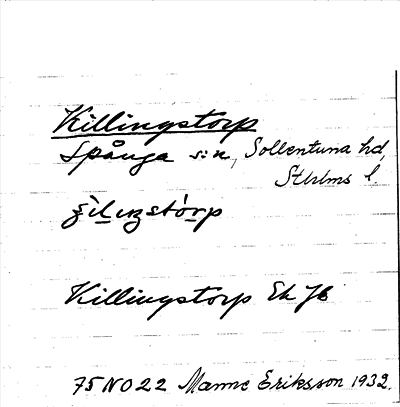 Killingstorp
Spånga s:n, Sollentuna hd,
Sthlms l
Killingstorp Ek
75 NO 22 Manne Eriksson 1932.